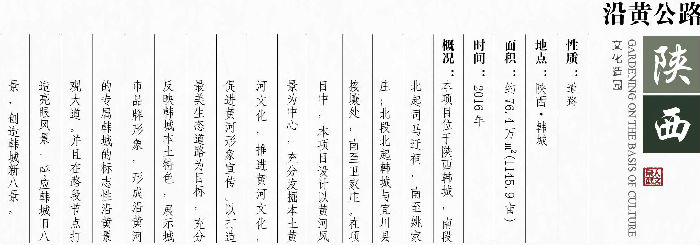 沿黄公路
陕西
GARDENING ON THE BASIS OF CULTURE
文化造园
性质：道路
地点：陕西·韩城
面积：约76.4万㎡(1145.9亩)
时间：2016年
概况：本项目位于陕西韩城，南段
北起司马迁祠，南至姚家
庄；北段北起韩城与宜川县
接壤处，南至卫家庄。在项
目中，本项目设计以黄河风
景为中心，充分发掘本土黄
河文化，推进黄河文化，
促进黄河形象宣传，以打造
最美生态道路为目标，充分
反映韩城本土特色，展示城
市品牌形象，形成沿黄河
的专属韩城的标志性沿黄景
观大道。并且在路段节点打
造亮眼风景，呼应韩城旧八
景，创造韩城新八景。